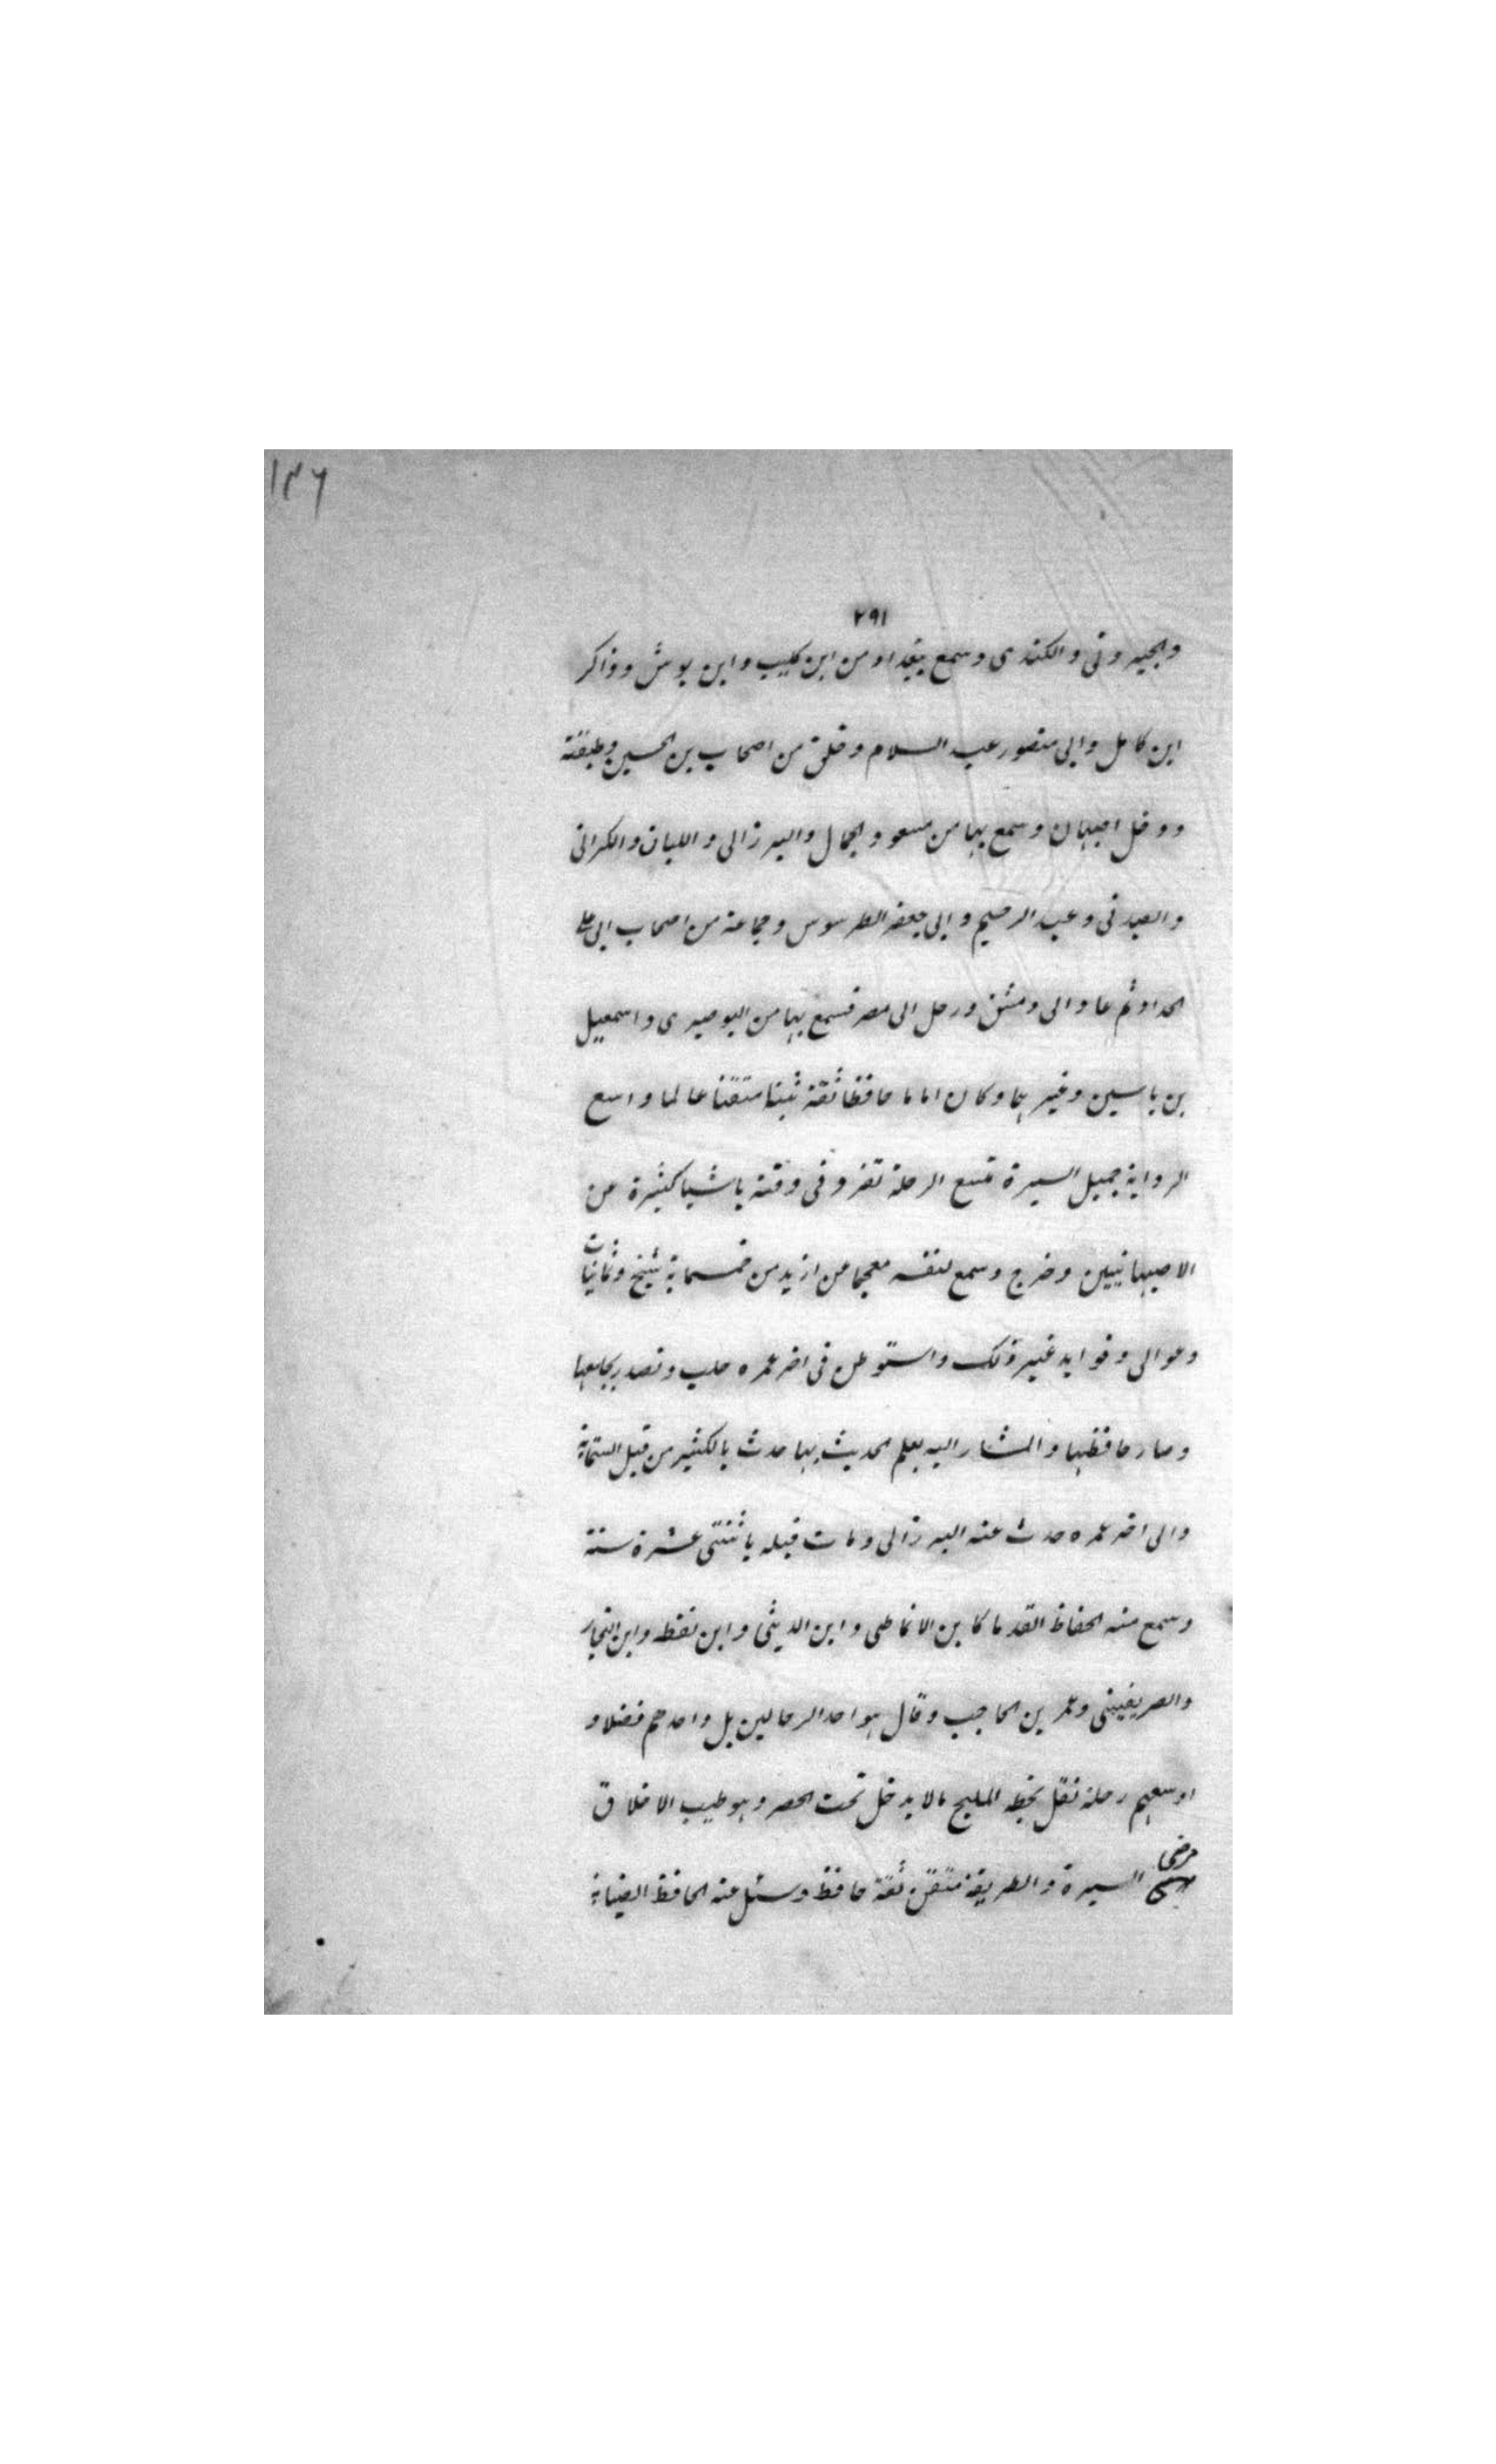 ١٣٦
٢٩١
والجيرونى والكندى وسمع ببغداد من ابن كليب وابن بوش وذاكر
ابن كامل وابى منصور عبد السلام وخلق من اصحاب بن الحسين وطبقته
ودخل اصبهان وسمع بها من مسعود الجمال والبرزالى واللبان والكرانى
والصيدنى وعبد الرحيم وابى جعفر الطرسوس وجماعة من اصحاب ابى على
الحداد ثم عاد الى دمشق ورحل الى مصر فسمع بها من البوصيرى واسمعيل
بن ياسين وغيرهما وكان اماما حافظا ثقة ثبتا متقنا عالما واسع
الرواية جميل السيرة متسع الرحلة تفرد فى وقته باشيا كثيرة من
الاصبهانيين وخرج وسمع لنفسه معجما من ازيد من خمسماية شيخ وثمانيات
وعوالى وفوايد غير ذلك واستوطن فى اخر عمره حلب وتصدر بجامعها
وصار حافظها والمشار اليه بعلم الحديث بها حدث بالكثير من قبل الستماية
والى اخر عمره حدث عنه البرزالى ومات قبله باثنتى عشرة سنة
وسمع منه الحفاظ القدما كابن الانماطى وابن الدبيثى وابن نقطه وابن النجار
والصريفينى وعمر بن الحاجب وقال هو احد الرحالين بل واحدهم فضلا و
اوسعهم رحلة نقل بخطه المليح مالا يدخل تحت الحصر وهو طيب الاخلاق
مرضى السيرة والطريقة متقن ثقة حافظ وسئل عنه الحافظ الضيا